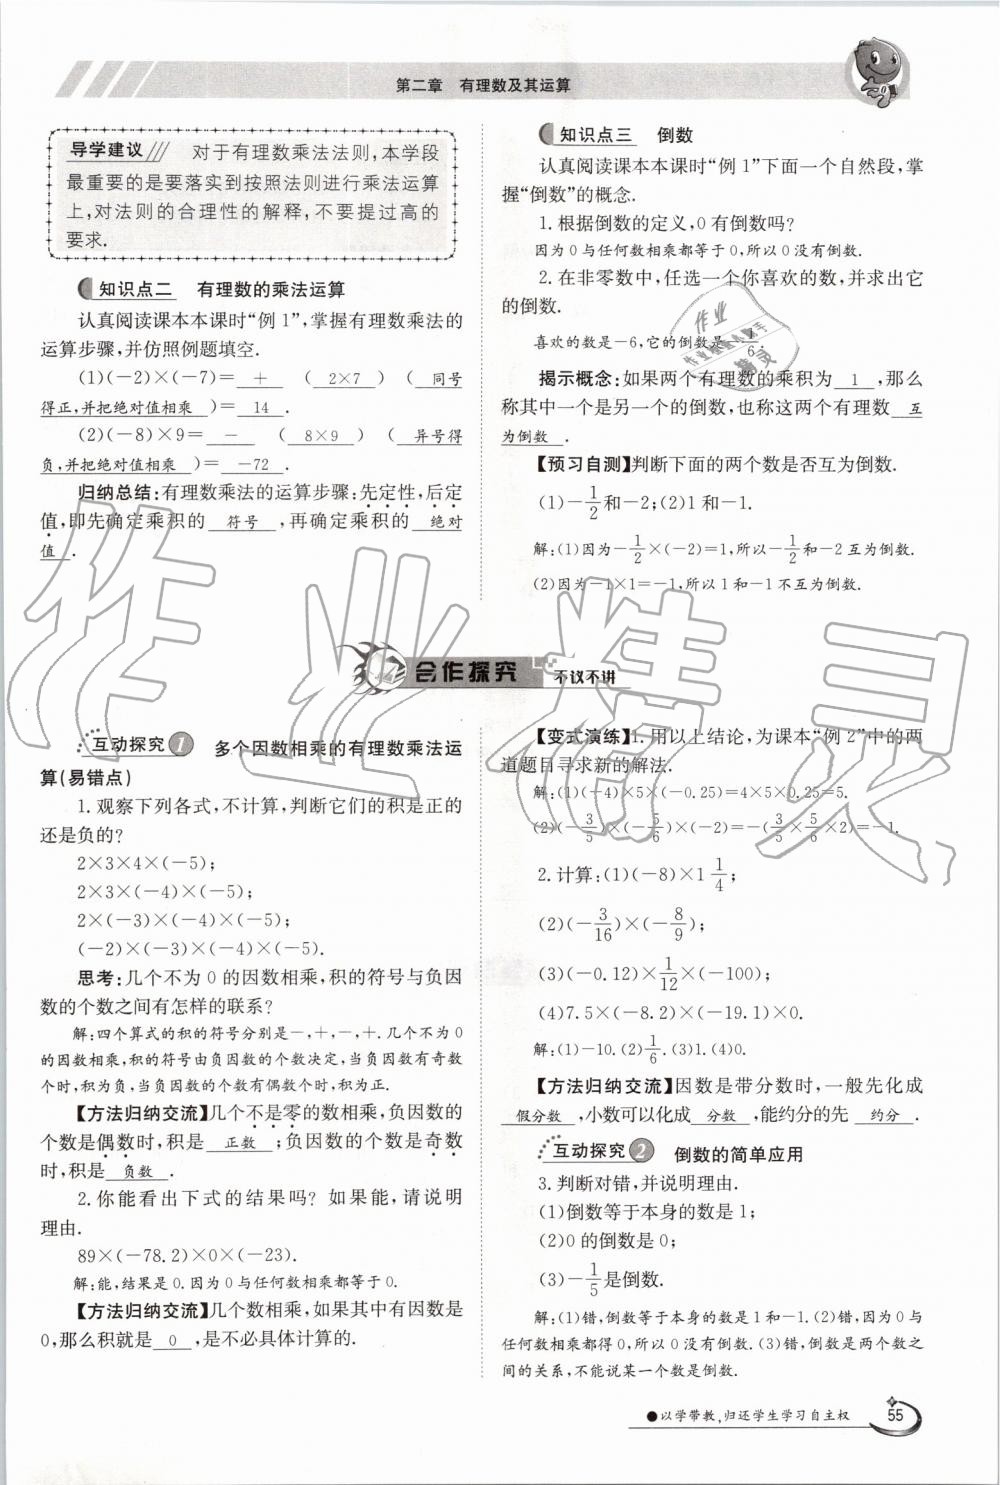 第二章 有理数及其运算
导学建议 对于有理数乘法法则,本学段
最重要的是要落实到按照法则进行乘法运算
上,对法则的合理性的解释,不要提过高的
要求.
知识点二 有理数的乘法运算
认真阅读课本本课时“例1”,掌握有理数乘法的
运算步骤,并仿照例题填空.
(1)(-2)×(-7)= + ( 2×7 ) ( 同号
得正,并把绝对值相乘 )= 14 .
(2)(-8)×9= - ( 8×9 ) ( 异号得
负,并把绝对值相乘 )= -72 .
归纳总结:有理数乘法的运算步骤:先定性,后定
值,即先确定乘积的 符号 ,再确定乘积的 绝对
值 .
知识点三 倒数
认真阅读课本本课时“例1”下面一个自然段,掌
握“倒数”的概念.
1.根据倒数的定义,0有倒数吗?
因为0与任何数相乘都等于0,所以0没有倒数.
2.在非零数中,任选一个你喜欢的数,并求出它
的倒数.
喜欢的数是-6,它的倒数是
揭示概念:如果两个有理数的乘积为 1 ,那么
称其中一个是另一个的倒数,也称这两个有理数 互
为倒数 .
【预习自测】判断下面的两个数是否互为倒数.
(1)-1/2和-2;(2)1和-1.
解:(1)因为-1/2×(-2)=1,所以-1/2和-2互为倒数.
(2)因为-1×1=-1,所以1和-1不互为倒数.
合作探究 不议不讲
互动探究1 多个因数相乘的有理数乘法运
算(易错点)
1.观察下列各式,不计算,判断它们的积是正的
还是负的?
2×3×4×(-5);
2×3×(-4)×(-5);
2×(-3)×(-4)×(-5);
(-2)×(-3)×(-4)×(-5).
思考:几个不为0的因数相乘,积的符号与负因
数的个数之间有怎样的联系?
解:四个算式的积的符号分别是-,+,-,+.几个不为0
的因数相乘,积的符号由负因数的个数决定,当负因数有奇数
个时,积为负,当负因数的个数有偶数个时,积为正.
【方法归纳交流】几个不是零的数相乘,负因数的
个数是偶数时,积是 正数 ;负因数的个数是奇数
时,积是 负数 .
2.你能看出下式的结果吗?如果能,请说明
理由.
89×(-78.2)×0×(-23).
解:能,结果是0.因为0与任何数相乘都等于0.
【方法归纳交流】几个数相乘,如果其中有因数是
0,那么积就是 0 ,是不必具体计算的.
【变式演练】1.用以上结论,为课本“例2”中的两
道题目寻求新的解法.
解:(1)(-4)×5×(-0.25)=4×5×0.25=5.
(2)(-3/5)×(-5/6)×(-2)=-(3/5×5/6×2)=-1.
2.计算:(1)(-8)×1 1/4;
(2)(-3/16)×(-8/9);
(3)(-0.12)×1/12×(-100);
(4)7.5×(-8.2)×(-19.1)×0.
解:(1)-10.(2)1/6.(3)1.(4)0.
【方法归纳交流】因数是带分数时,一般先化成
假分数 ,小数可以化成 分数 ,能约分的先 约分 .
互动探究2 倒数的简单应用
3.判断对错,并说明理由.
(1)倒数等于本身的数是1;
(2)0的倒数是0;
(3)-1/5是倒数.
解:(1)错,倒数等于本身的数是1和-1.(2)错,因为0与
任何数相乘都得0,所以0没有倒数.(3)错,倒数是两个数之
间的关系,不能说某一个数是倒数.
●以学带教,归还学生学习自主权
55
作业精灵